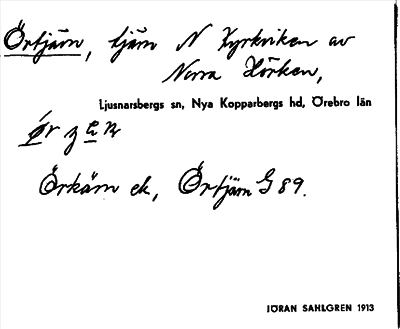 Örtjärn, tjärn N Kyrkviken av
Norra Hörken,
Ljusnarsbergs sn, Nya Kopparbergs hd, Örebro län
Örkärn ek, Örtjärn G 89.
JÖRAN SAHLGREN 1913